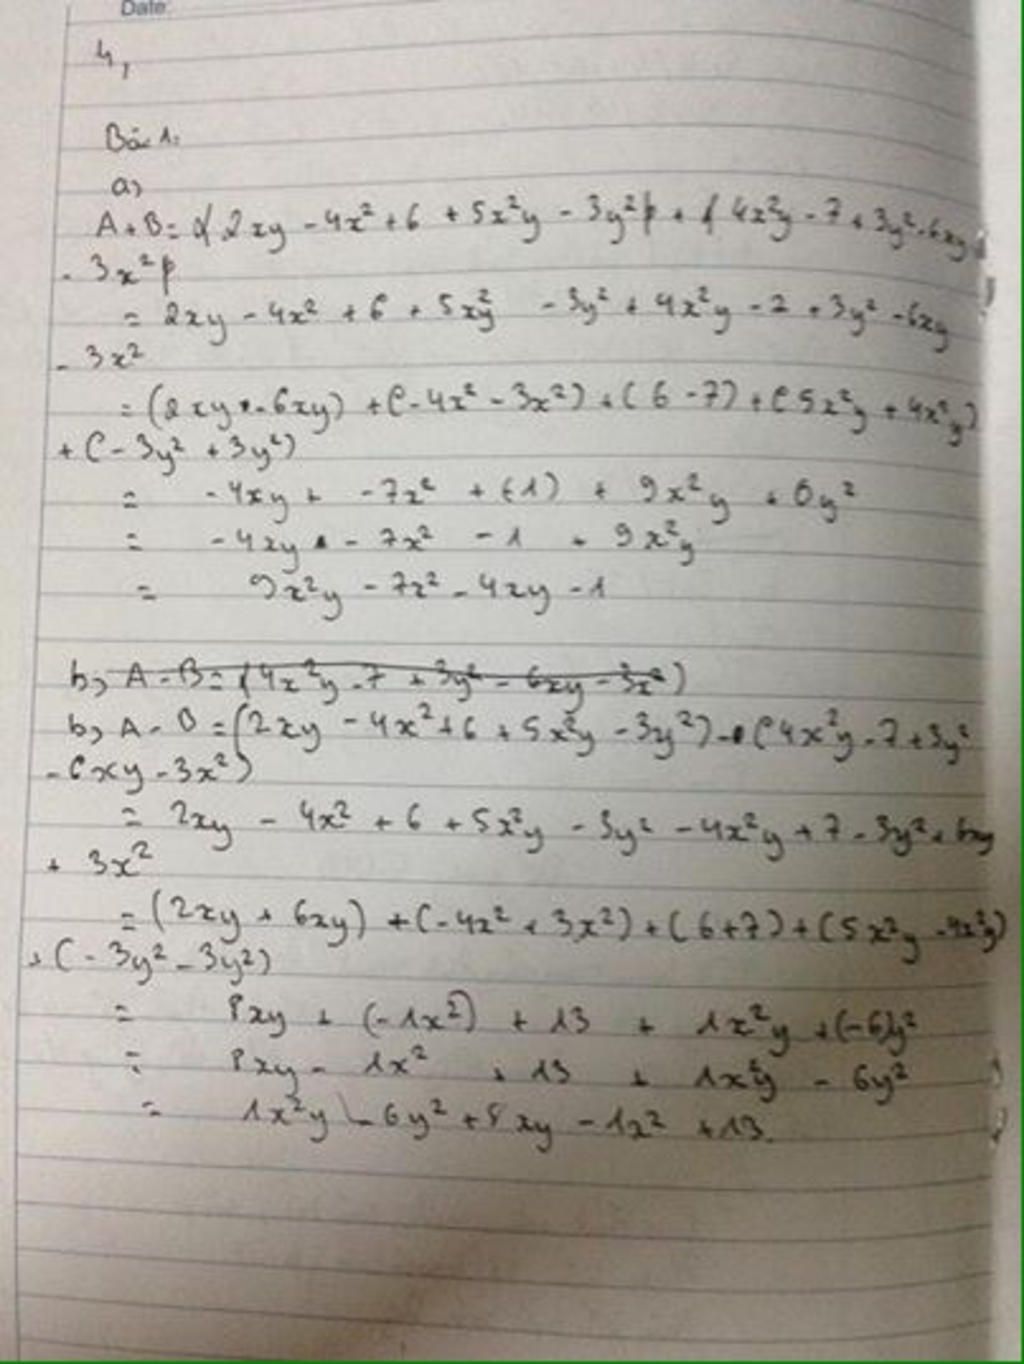 Date
4,
Bài 1:
a)
A+B= (2xy - 4x² + 6 + 5x²y - 3y²) + (4x²y - 7 + 3y² - 6xy
- 3x²)
= 2xy - 4x² + 6 + 5x²y - 3y² + 4x²y - 7 + 3y² - 6xy
- 3x²
= (2xy - 6xy) + (-4x² - 3x²) + (6 - 7) + (5x²y + 4x²y)
+ (-3y² + 3y²)
= -4xy + -7x² + (-1) + 9x²y + 0y²
= -4xy - 7x² - 1 + 9x²y
= 9x²y - 7x² - 4xy - 1
b) A - B = (4x²y - 7 + 3y² - 6xy - 3x²)
b) A - B = (2xy - 4x² + 6 + 5x²y - 3y²) - (4x²y - 7 + 3y²
- 6xy - 3x²)
= 2xy - 4x² + 6 + 5x²y - 3y² - 4x²y + 7 - 3y² + 6xy
+ 3x²
= (2xy + 6xy) + (-4x² + 3x²) + (6+7) + (5x²y - 4x²y)
+ (-3y² - 3y²)
= 8xy + (-1x²) + 13 + 1x²y + (-6)y²
= 8xy - 1x² + 13 + 1x²y - 6y²
= 1x²y - 6y² + 8xy - 1x² + 13.